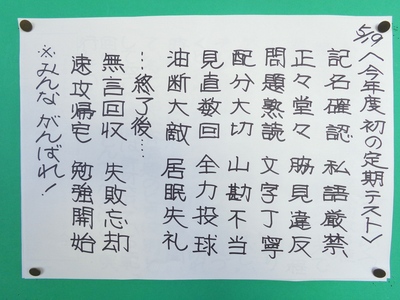 5/9〈今年度 初の定期テスト〉
記名確認 私語厳禁
正々堂々 脇見違反
問題熟読 文字丁寧
配分大切 山勘不当
見直数回 全力投球
油断大敵 居眠失礼
…終了後…
無言回収 失敗忘却
速攻帰宅 勉強開始
※みんな がんばれ!